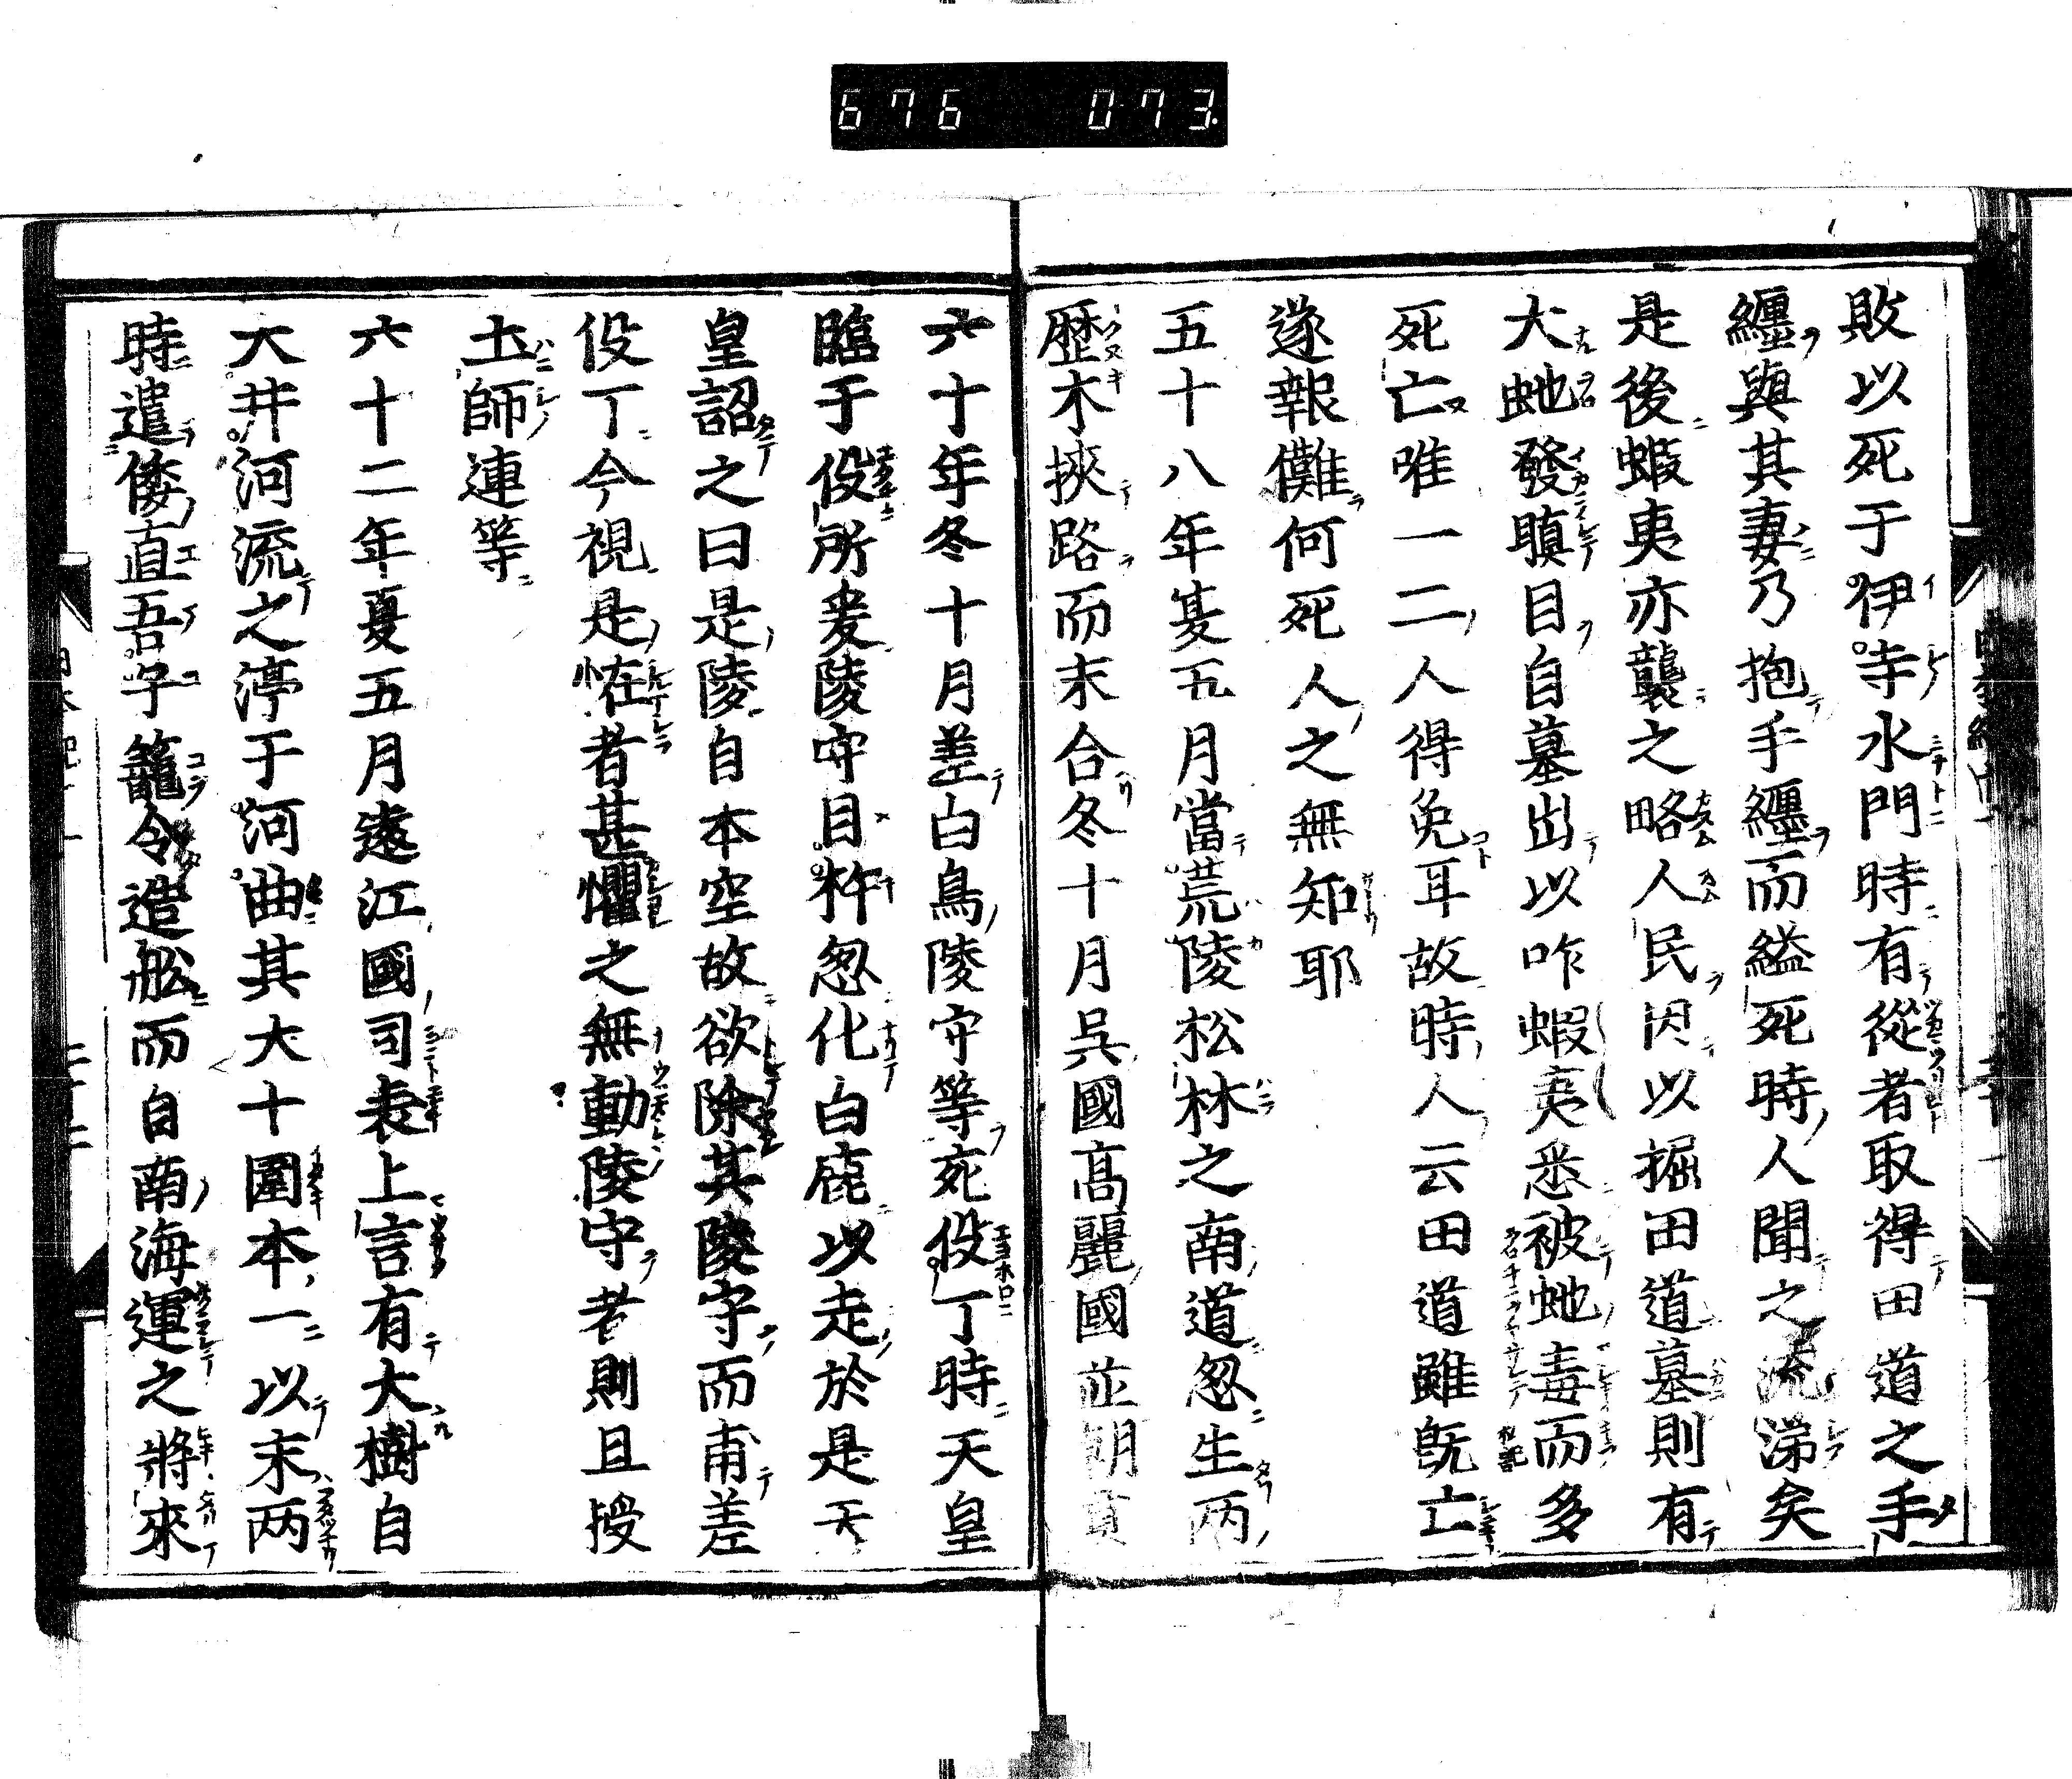 676 073
敗以死于伊寺水門時有從者取得田道之手
纒與其妻乃抱手纒而縊死時人聞之流涕矣
是後蝦夷亦襲之略人民因以掘田道墓則有
大虵發瞋目自墓出以咋蝦夷悉被虵毒而多
死亡唯一二人得免耳故時人云田道雖既亡
遂報讎何死人之無知耶
五十八年夏五月當荒陵松林之南道忽生两
歴木挾路而末合冬十月呉國髙麗國並朝貢
六十年冬十月差白鳥陵守等死役丁時天皇
臨于役所爰陵守目杵忽化白鹿以走於是天
皇詔之曰是陵自本空故欲除其陵守而甫差
役丁今視是恠者甚懼之無動陵守者則且授
土師連等
六十二年夏五月遠江國司表上言有大樹自
大井河流之渟于河曲其大十圍本一以末两
時遣倭直吾子籠令造舩而自南海運之將來